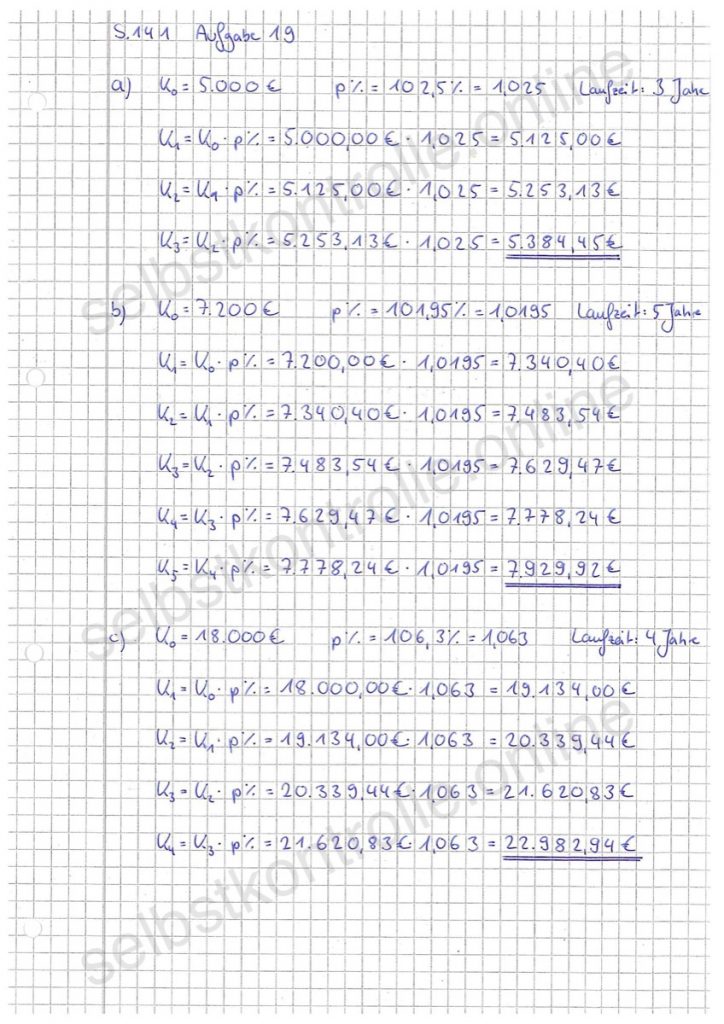 S.141 Aufgabe 19
a) K₀ = 5.000 € p% = 102,5% = 1,025 Laufzeit: 3 Jahre
K₁ = K₀ · p% = 5.000,00 € · 1,025 = 5.125,00 €
K₂ = K₁ · p% = 5.125,00 € · 1,025 = 5.253,13 €
K₃ = K₂ · p% = 5.253,13 € · 1,025 = 5.384,45 €
b) K₀ = 7.200 € p% = 101,95% = 1,0195 Laufzeit: 5 Jahre
K₁ = K₀ · p% = 7.200,00 € · 1,0195 = 7.340,40 €
K₂ = K₁ · p% = 7.340,40 € · 1,0195 = 7.483,54 €
K₃ = K₂ · p% = 7.483,54 € · 1,0195 = 7.629,47 €
K₄ = K₃ · p% = 7.629,47 € · 1,0195 = 7.778,24 €
K₅ = K₄ · p% = 7.778,24 € · 1,0195 = 7.929,92 €
c) K₀ = 18.000 € p% = 106,3% = 1,063 Laufzeit: 4 Jahre
K₁ = K₀ · p% = 18.000,00 € · 1,063 = 19.134,00 €
K₂ = K₁ · p% = 19.134,00 € · 1,063 = 20.339,44 €
K₃ = K₂ · p% = 20.339,44 € · 1,063 = 21.620,83 €
K₄ = K₃ · p% = 21.620,83 € · 1,063 = 22.982,94 €
selbstkontrolle.online
selbstkontrolle.online
selbstkontrolle.online